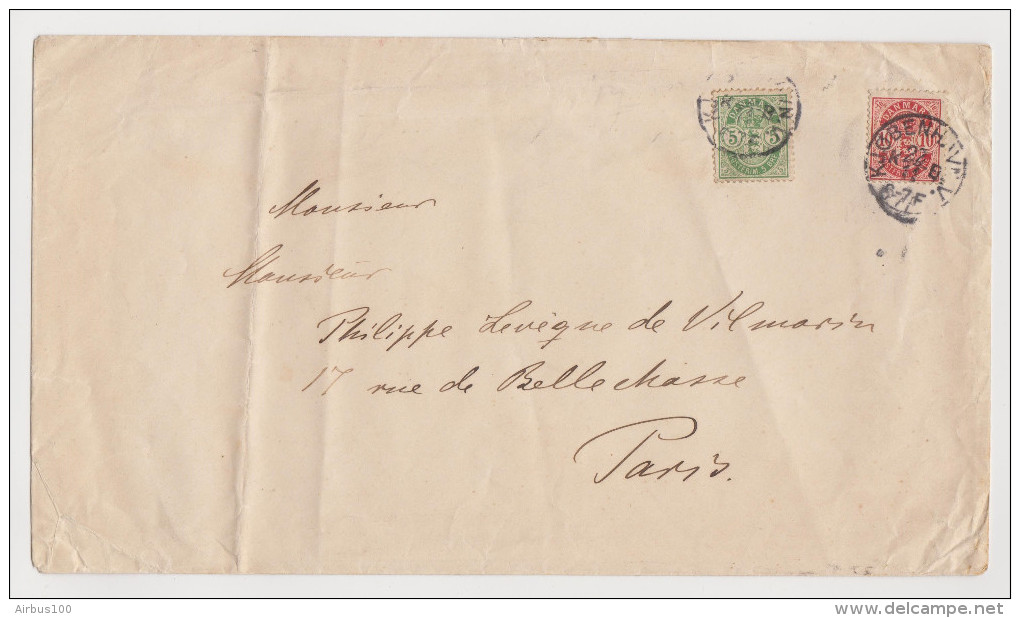 DANMARK
5 5
DANMARK
10 10
KJØBENHAVN
KJØBENHAVN.V.
6-7E
Monsieur
Monsieur
Philippe Levêque de Vilmorin
17 rue de Bellechasse
Paris.
Airbus100
www.delcampe.net